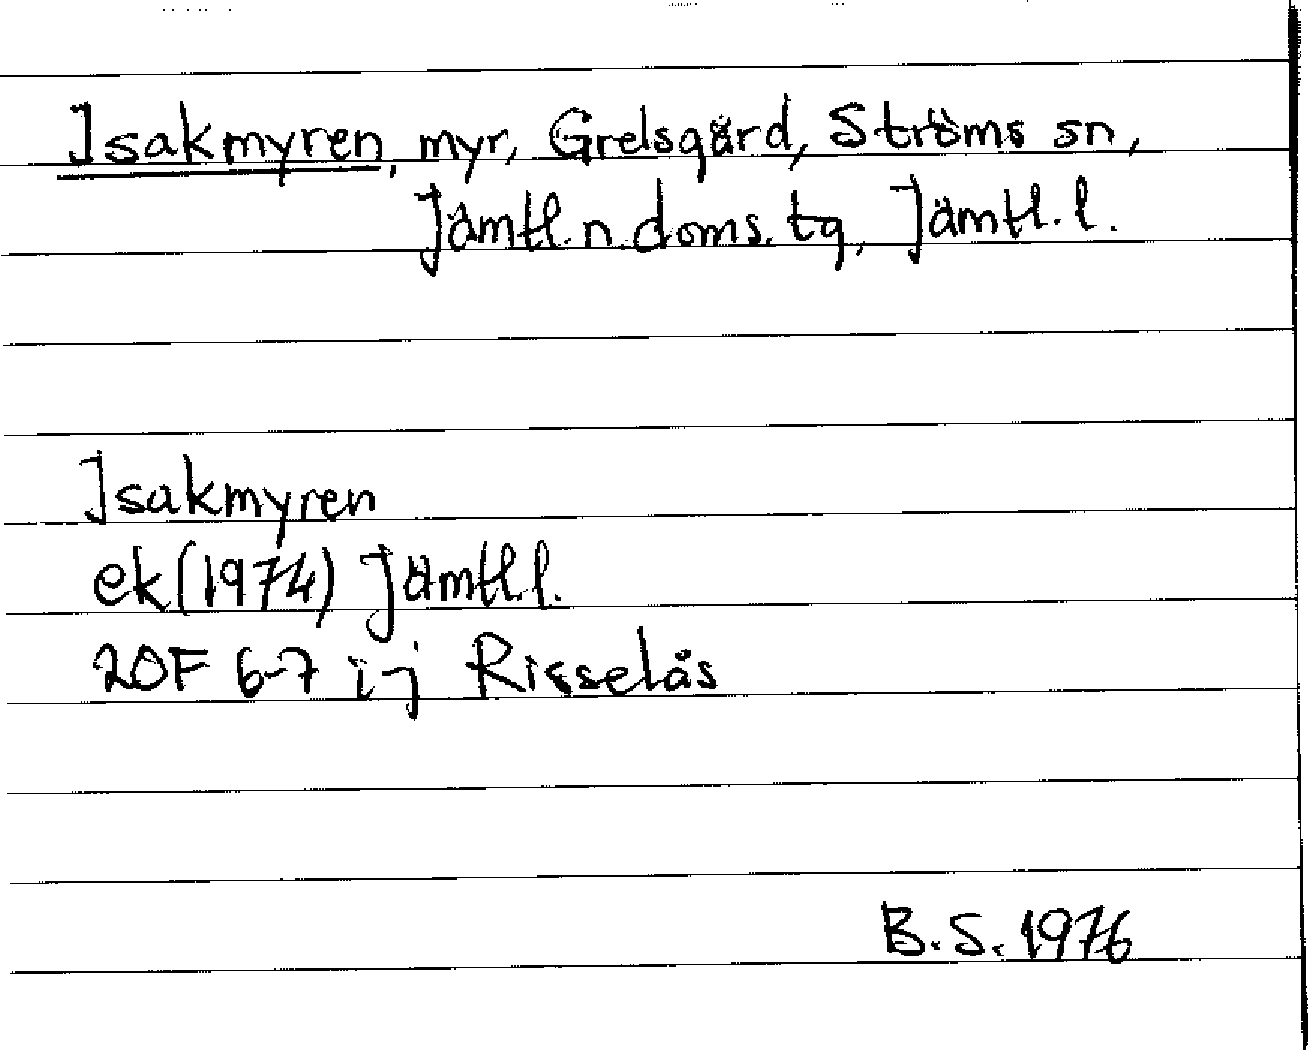 Isakmyren, myr, Grelsgård, Ströms sn,
Jämtl. n. doms. tg, Jämtl. l.
Isakmyren
ek (1974) Jämtl l.
20F 6-7 i-j Risselås
B.S. 1976